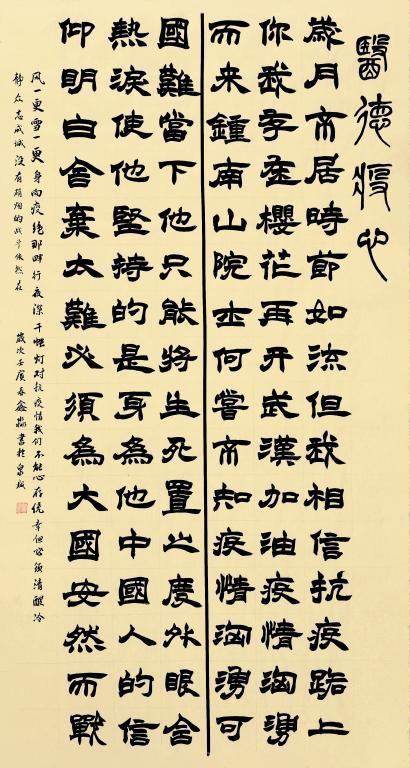 醫德心
歲月不居時節如流但我相信抗疫路上
你我季至櫻花再开武漢加油疫情洶湧
而来鍾南山院士何嘗不知疫情洶湧可
國難當下他只能將生死置之度外眼含
熱淚使他堅持的是身為他中國人的信
仰明白舍棄太難必須為大國安然而戰
风一更雪一更身向疫绝那畔行夜深千帐灯对抗疫情我们不能心存侥幸但必须清醒冷
静众志成城没有硝烟的战斗依然在
歲次壬寅春鑫書於泉城